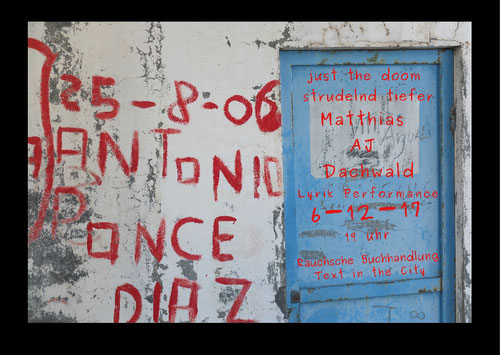 25-8-06
ANTONIO
PONCE
DIAZ
just the doom
strudelnd tiefer
Matthias
AJ
Dachwald
Lyrik Performance
6-12-17
19 Uhr
Rauchsche Buchhandlung
Text in the City